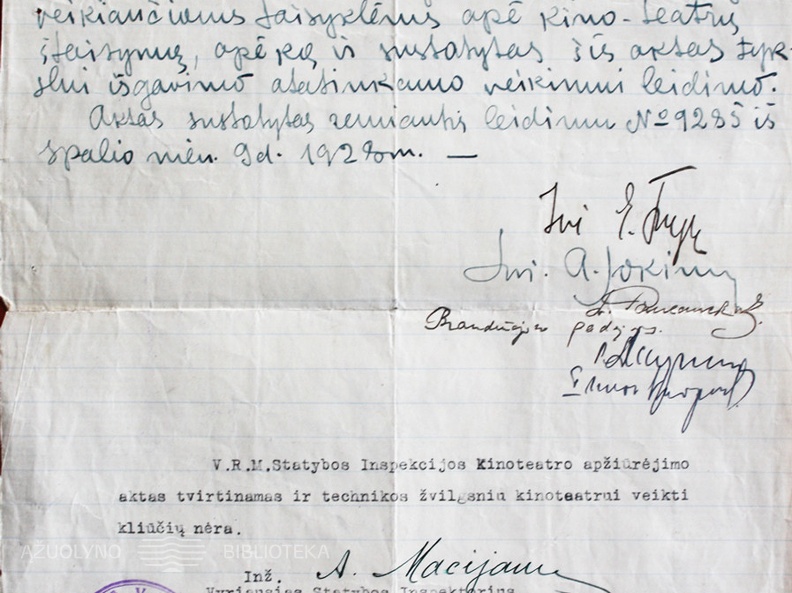 veikiančioms taisyklėms apė kino-teatrų
įtaisymą, apė ką ir sustatytas šis aktas tyk-
slui išgavimo atatinkamo veikimui leidimo.
Aktas sustatytas remiantis leidimu № 9285 iš
spalio mėn. 9 d. 1928 m. —
Inž. E.
Inž. A. Jokim
V.R.M.Statybos Inspekcijos Kinoteatro apžiūrėjimo
aktas tvirtinamas ir technikos žvilgsniu kinoteatrui veikti
kliūčių nėra.
AŽUOLYNO BIBLIOTEKA
Inž. A. Macijauskas
Vyriausias Statybos Inspektorius